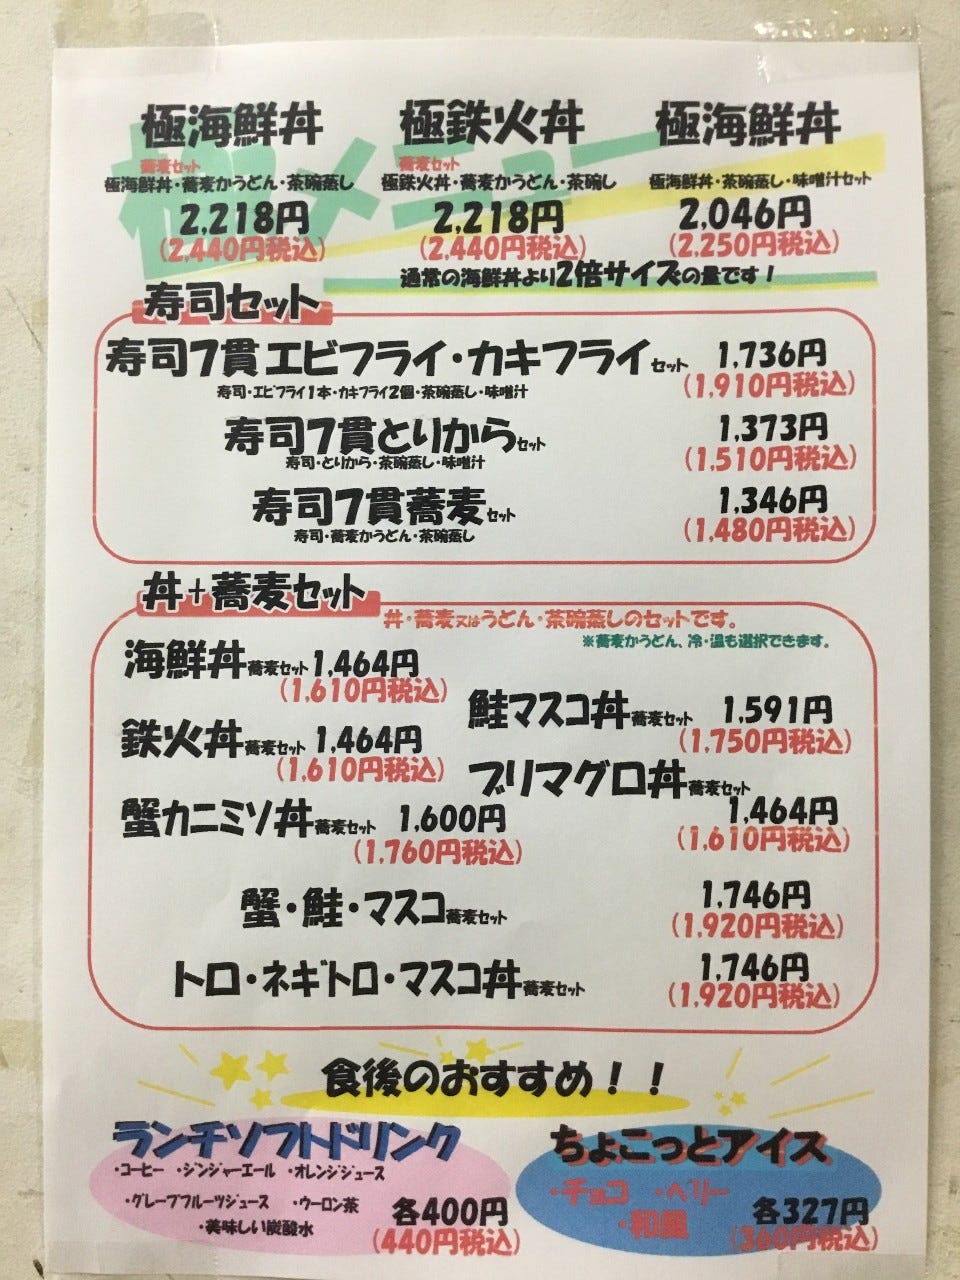 極メニュー
極海鮮丼
蕎麦セット
極海鮮丼・蕎麦かうどん・茶碗蒸し
2,218円
(2,440円税込)
極鉄火丼
蕎麦セット
極鉄火丼・蕎麦かうどん・茶碗し
2,218円
(2,440円税込)
極海鮮丼
極海鮮丼・茶碗蒸し・味噌汁セット
2,046円
(2,250円税込)
通常の海鮮丼より2倍サイズの量です！
寿司セット
寿司7貫エビフライ・カキフライセット 1,736円
寿司・エビフライ1本・カキフライ2個・茶碗蒸し・味噌汁 (1,910円税込)
寿司7貫とりからセット 1,373円
寿司・とりから・茶碗蒸し・味噌汁 (1,510円税込)
寿司7貫蕎麦セット 1,346円
寿司・蕎麦かうどん・茶碗蒸し (1,480円税込)
丼+蕎麦セット
丼・蕎麦又はうどん・茶碗蒸しのセットです。
※蕎麦かうどん、冷・温も選択できます。
海鮮丼蕎麦セット 1,464円
(1,610円税込)
鉄火丼蕎麦セット 1,464円
(1,610円税込)
蟹カニミソ丼蕎麦セット 1,600円
(1,760円税込)
鮭マスコ丼蕎麦セット 1,591円
(1,750円税込)
ブリマグロ丼蕎麦セット
1,464円
(1,610円税込)
蟹・鮭・マスコ蕎麦セット 1,746円
(1,920円税込)
トロ・ネギトロ・マスコ丼蕎麦セット 1,746円
(1,920円税込)
食後のおすすめ！！
ランチソフトドリンク
・コーヒー ・ジンジャーエール ・オレンジジュース
・グレープフルーツジュース ・ウーロン茶
・美味しい炭酸水
各400円
(440円税込)
ちょこっとアイス
・チョコ ・ベリー
・和風
各327円
(360円税込)